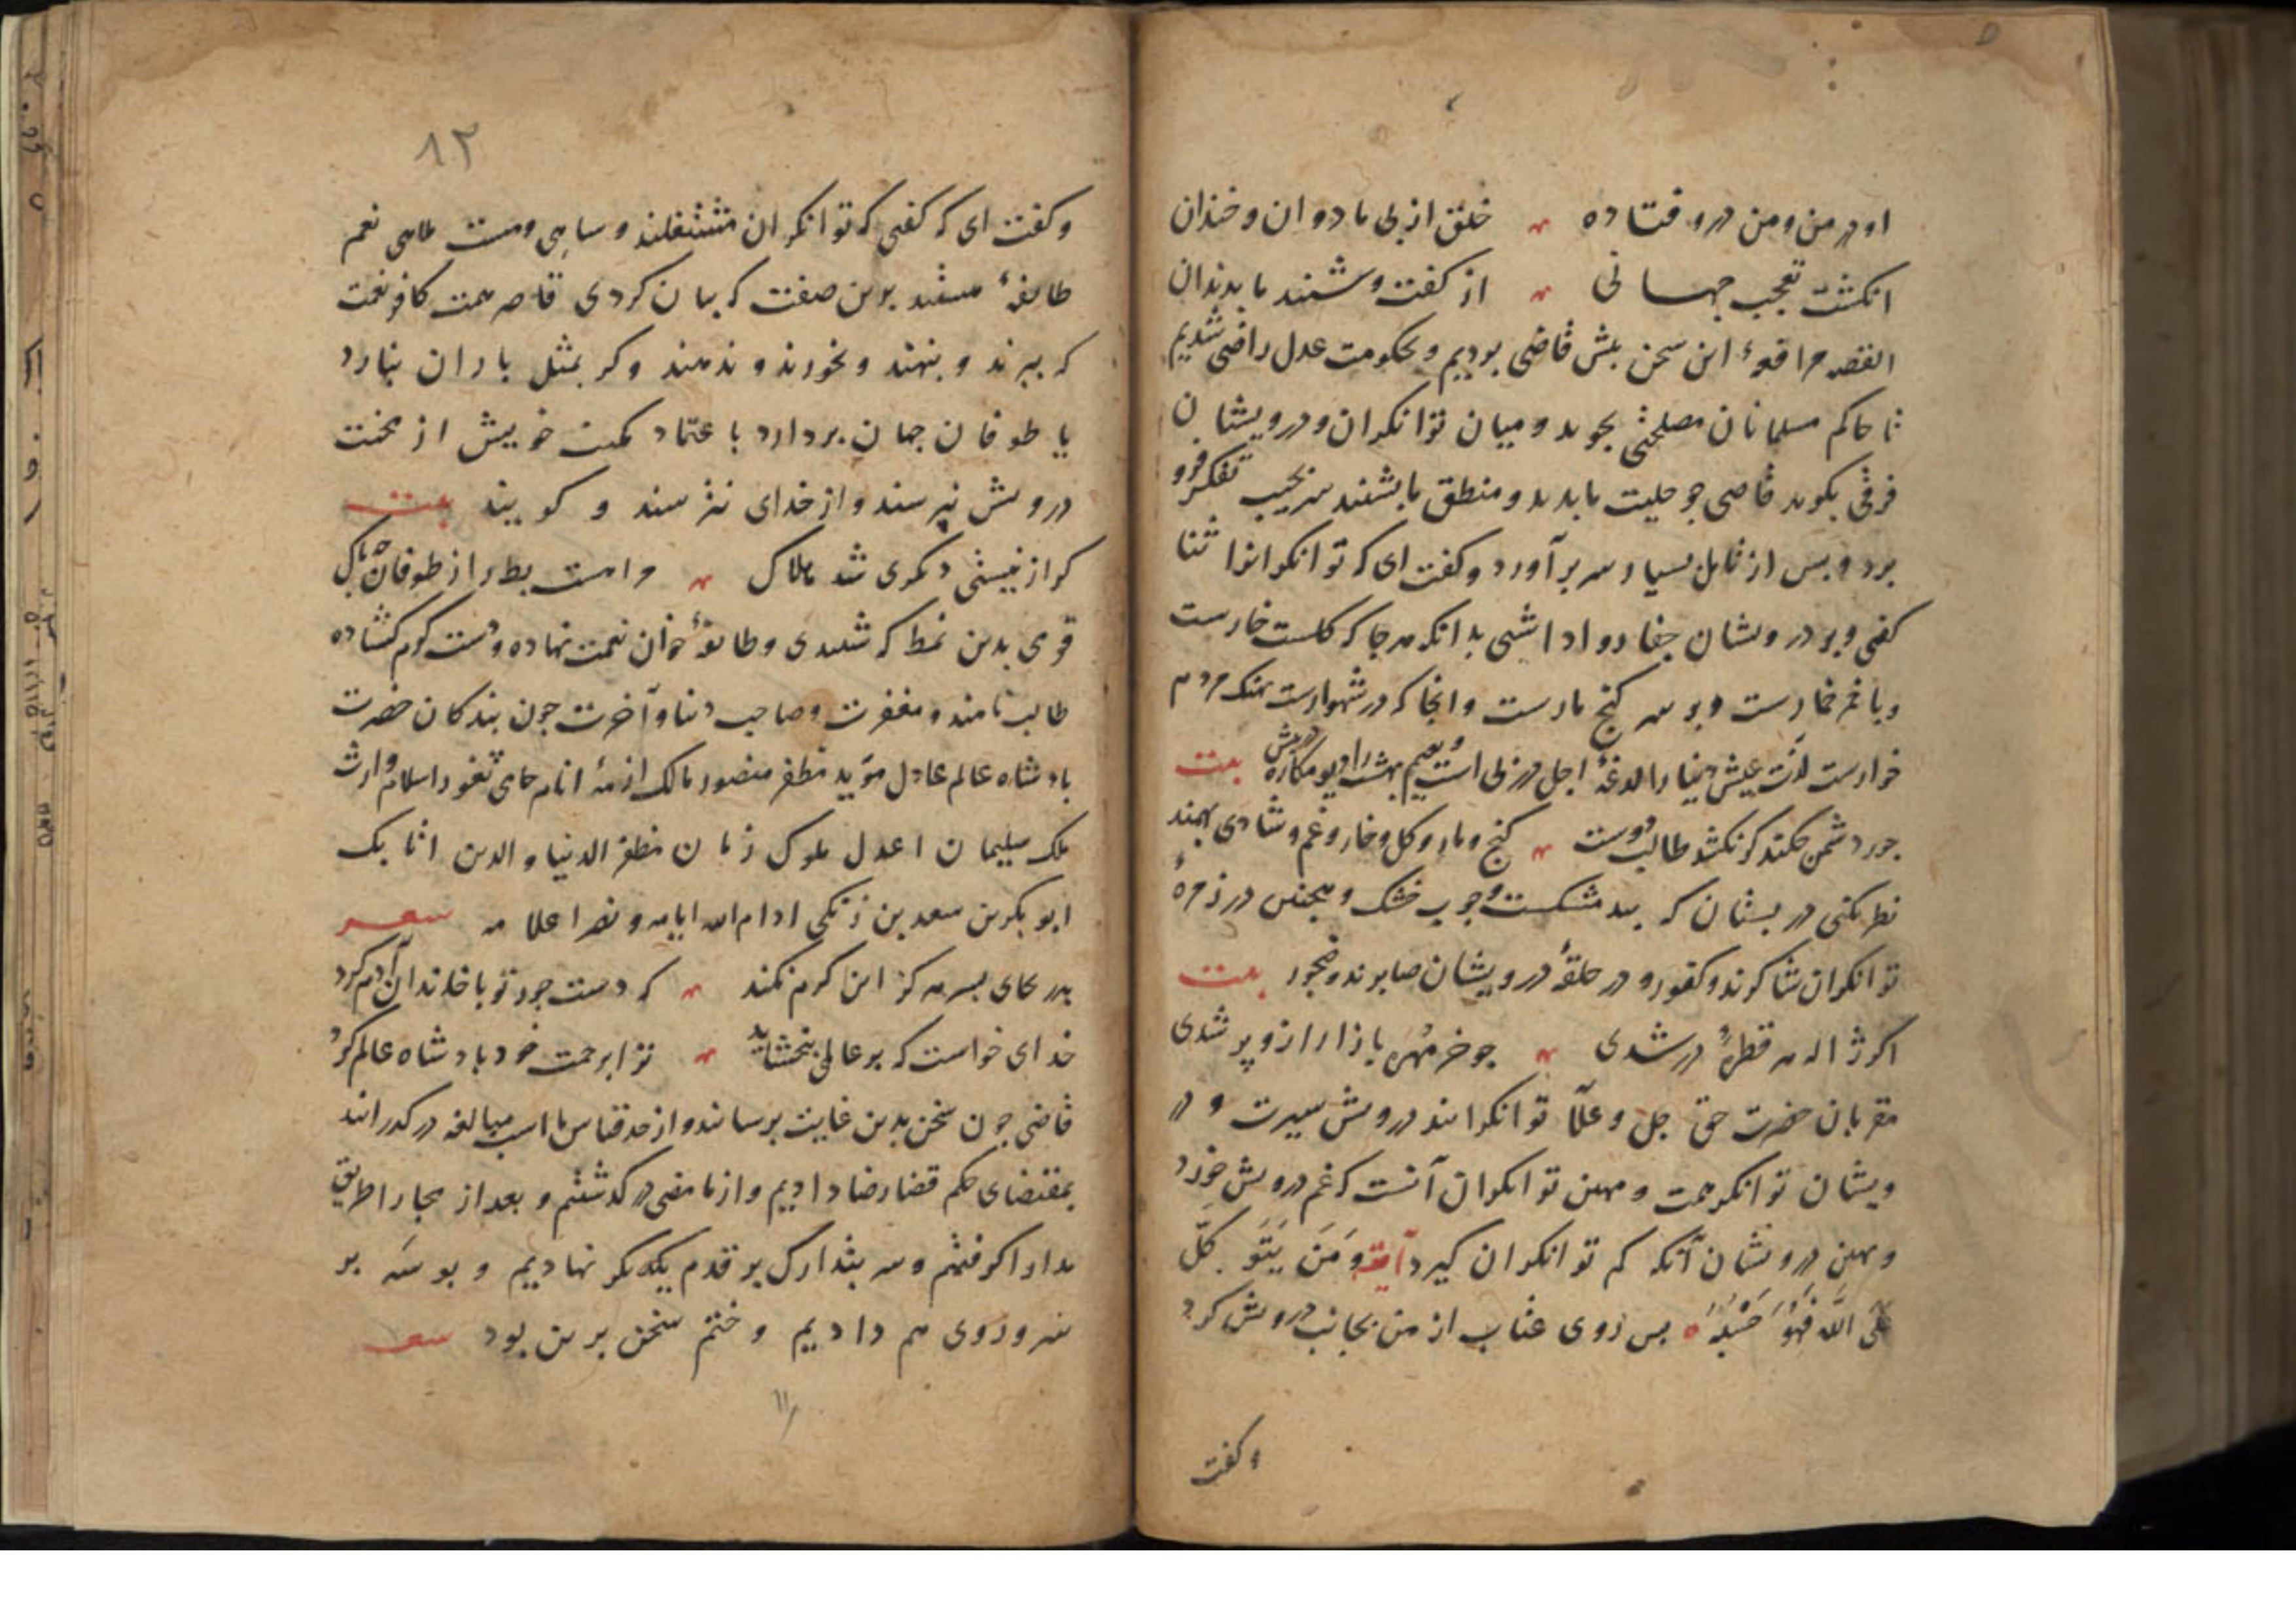 او در من و من درو فتاده ؞ خلق از پی ما دوان و خندان
انکشت تعجب جهانی ؞ از کفت و شنید ما بدندان
القصه مرافعهٔ این سخن پیش قاضی بردیم و بحکومت عدل راضی شدیم
تا حاکم مسلمانان مصلحتی بجوید و میان توانکران و درویشان
فرقی بکوید قاضی جو حلیت ما بدید و منطق ما بشنید سر بجیب تفکر فرو
برد و پس از تامل بسیار سر برآورد و کفت ای که توانکرانرا ثنا
کفتی و بر درویشان جفا روا داشتی بدانکه هر جا که کلست خارست
و با خمر خمارست و بر سر کنج مارست و انجا که در شهوارست نهنک مردم
خوارست لذت عیش دنیا را لدغهٔ اجل در پی است و نعیم بهشت را دیو مکاره در پیش بیت
جور دشمن چکند کر نکشد طالب دوست ؞ کنج و مار و کل و خار و غم و شادی بهمند
نظر نکنی در بستان که بید مشکست و چوب خشک و همچنین در زمرهٔ
توانکران شاکرند و کفور و در حلقهٔ درویشان صابرند و ضجور بیت
اکر ژاله هر قطرهٔ در شدی ؞ جو خرمهره بازار ازو پر شدی
مقربان حضرت حق جل و علا توانکرانند درویش سیرت و در
ویشان توانکر همت و مهین توانکران آنست که غم درویش خورد
و بهین درویشان آنکه کم توانکران کیرد آیة وَمَن یَتَوَکَّل
عَلَی اللّه فَهُوَ حَسْبُهُ ه پس روی عتاب از من بجانب درویش کرد
و کفت
۸۲
و کفت ای که کفتی که توانکران مشتغلند و ساهی و مست ملاهی نعم
طایفهٔ هستند برین صفت که بیان کردی قاصر همت کافر نعمت
که ببرند و بنهند و نخورند و ندهند و کر بمثل باران نبارد
یا طوفان جهان بردارد باعتماد مکنت خویش از محنت
درویش نپرسند و از خدای نترسند و کویند بیت
کر از نیستی دیکری شد هلاک ؞ مرا هست بط را ز طوفان چه باک
قومی بدین نمط که شنیدی و طایفهٔ خوان نعمت نهاده و دست کرم کشاده
طالب نامند و مغفرت و صاحب دنیا و آخرت چون بندکان حضرت
پادشاه عالم عادل مؤید مظفر منصور مالک ازمهٔ انام حامی ثغور اسلام وارث
ملک سلیمان اعدل ملوک زمان مظفر الدنیا و الدین اتابک
ابوبکر بن سعد بن زنکی ادام الله ایامه و نصر اعلامه شعر
پدر بجای پسر هرکز این کرم نکند ؞ که دست جود تو با خاندان آدم کرد
خدای خواست که بر عالمی ببخشاید ؞ ترا برحمت خود پادشاه عالم کرد
قاضی چون سخن بدین غایت برسانید و از حد قیاس ما اسب مبالغه در کذرانید
بمقتضای حکم قضا رضا دادیم و از ما مضی در کذشتیم و بعد از مجارا طریق
مدارا کرفتیم و سر بتدارک بر قدم یکدیکر نهادیم و بوسه بر
سر و روی هم دادیم و ختم سخن برین بود شعر